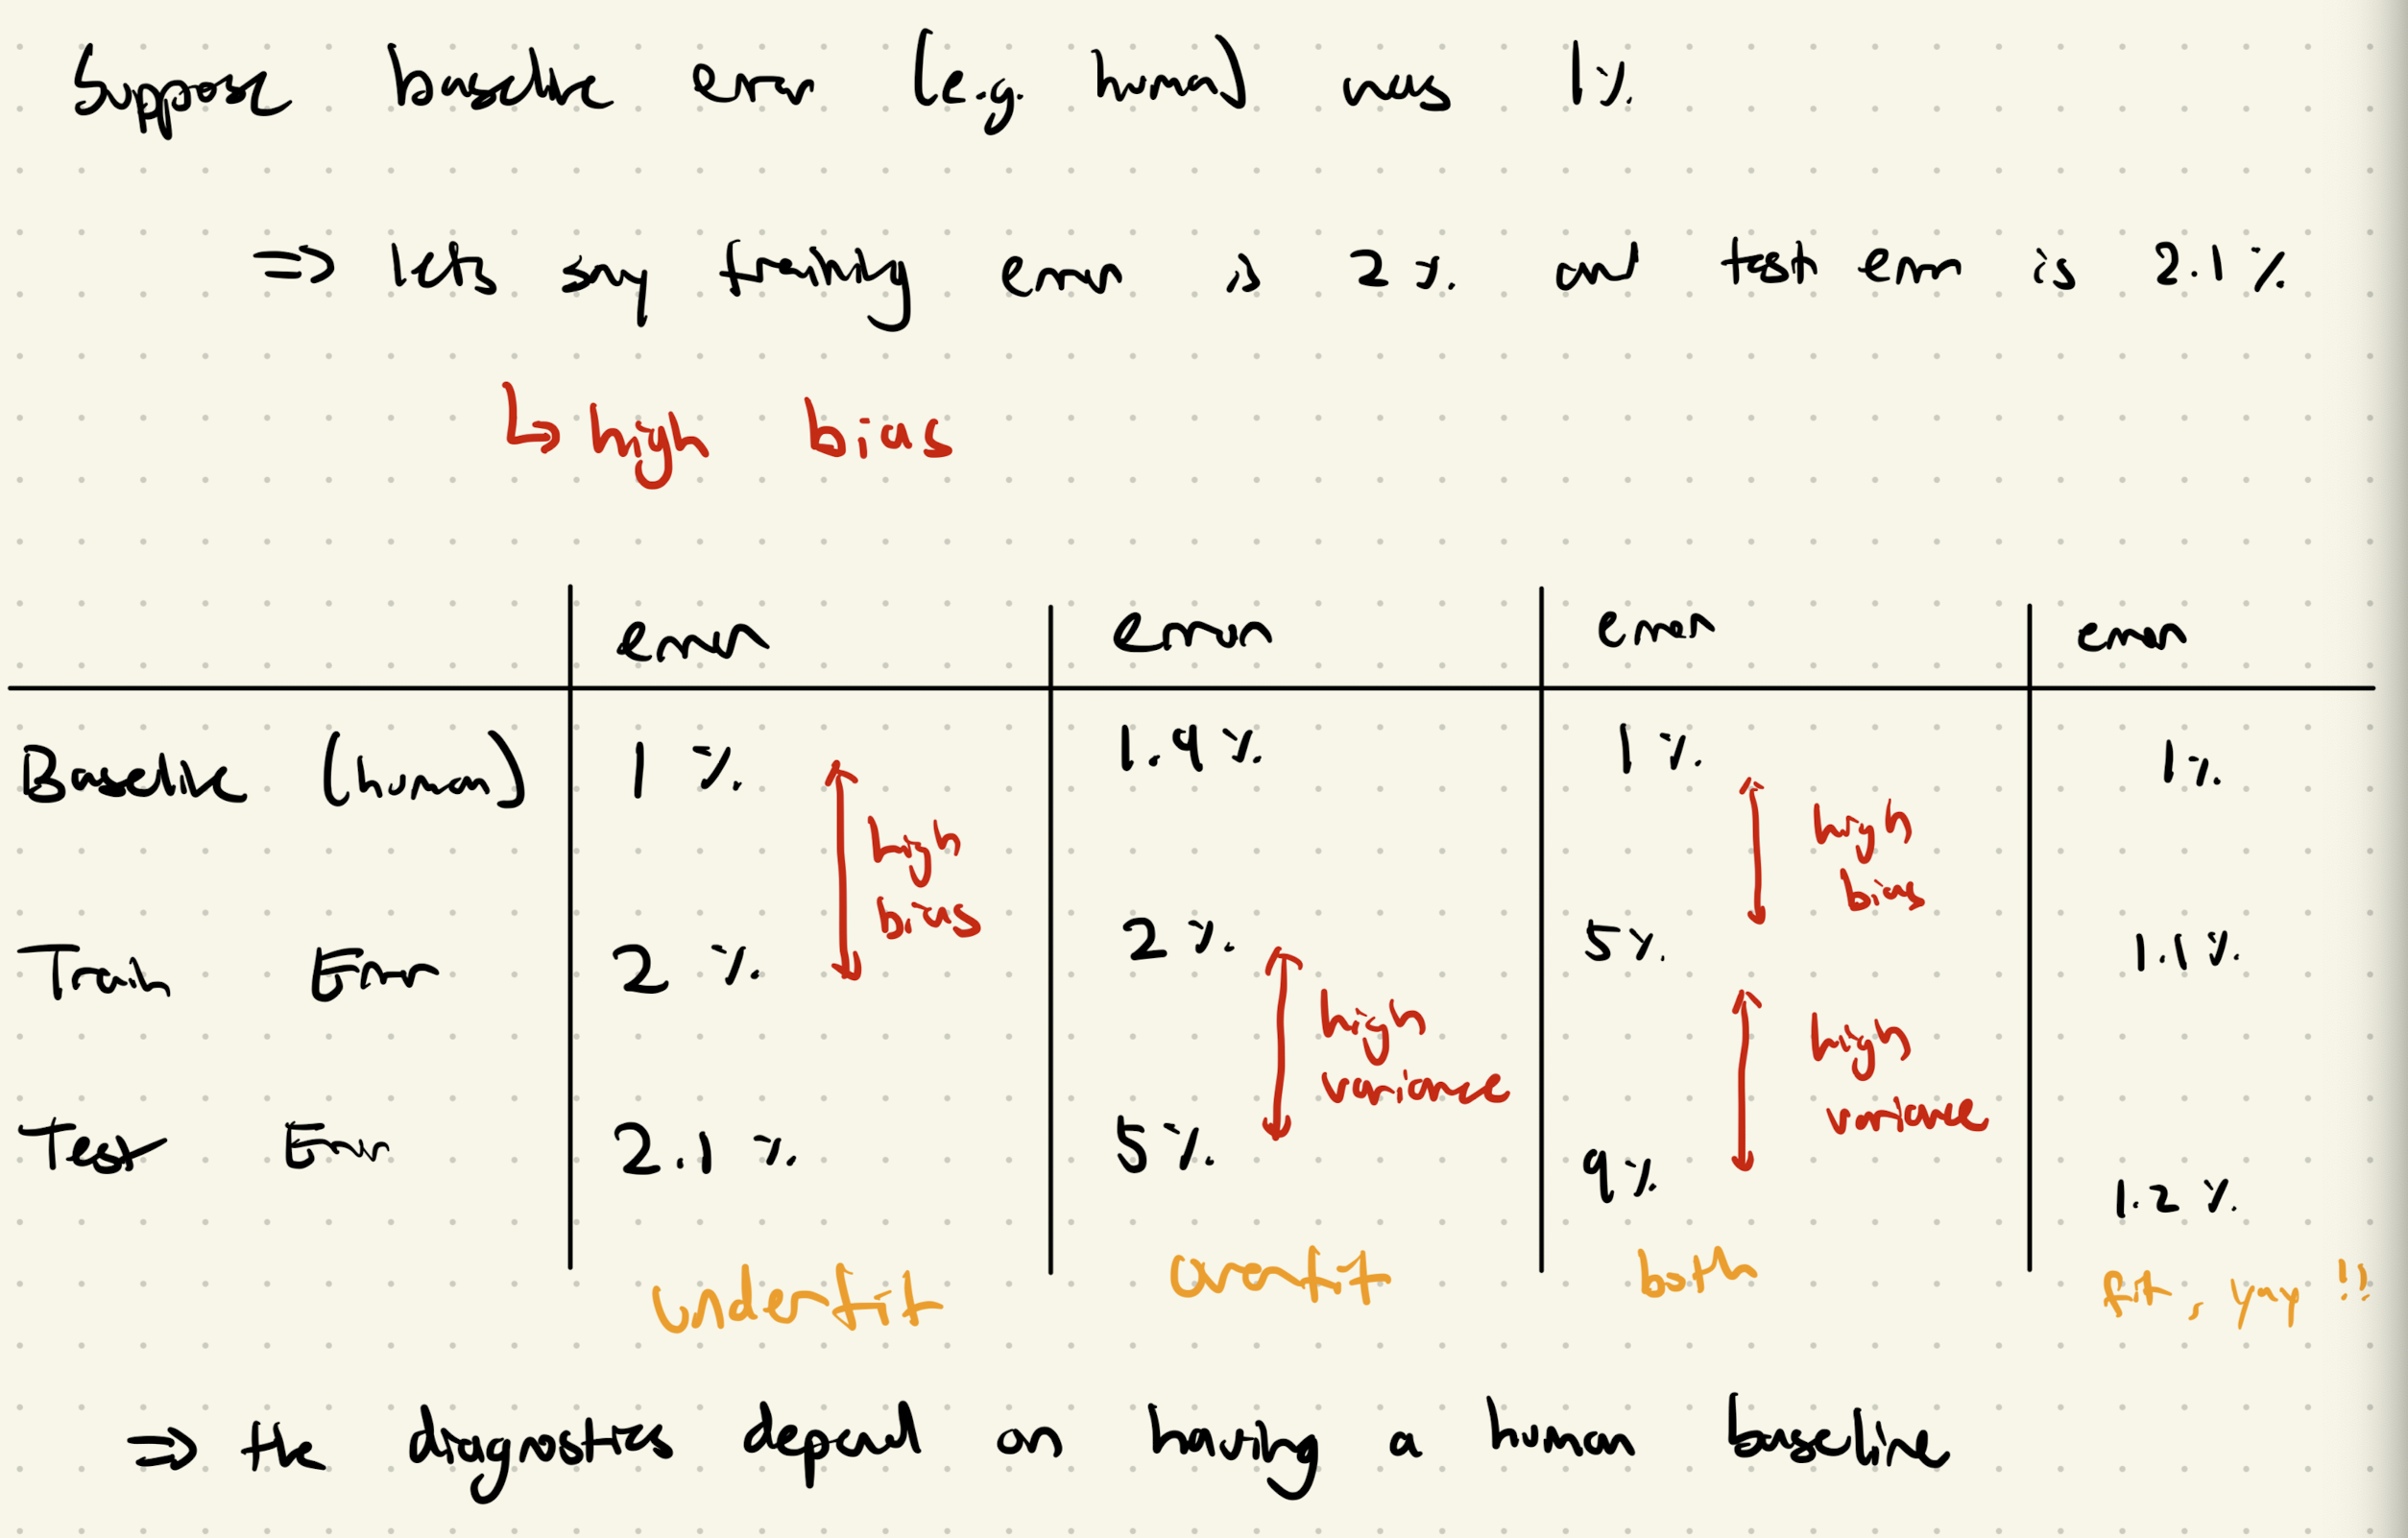 Suppose baseline error (e.g. human) was 1%
=> lets say training error is 2% and test error is 2.1%
↳ high bias
error error error error
Baseline (human) 1% 1.9% 1% 1%
high bias high bias
Train Error 2% 2% 5% 1.1%
high variance high variance
Test Error 2.1% 5% 9% 1.2%
underfit overfit both fit, yay!!
=> the diagnostics depend on having a human baseline